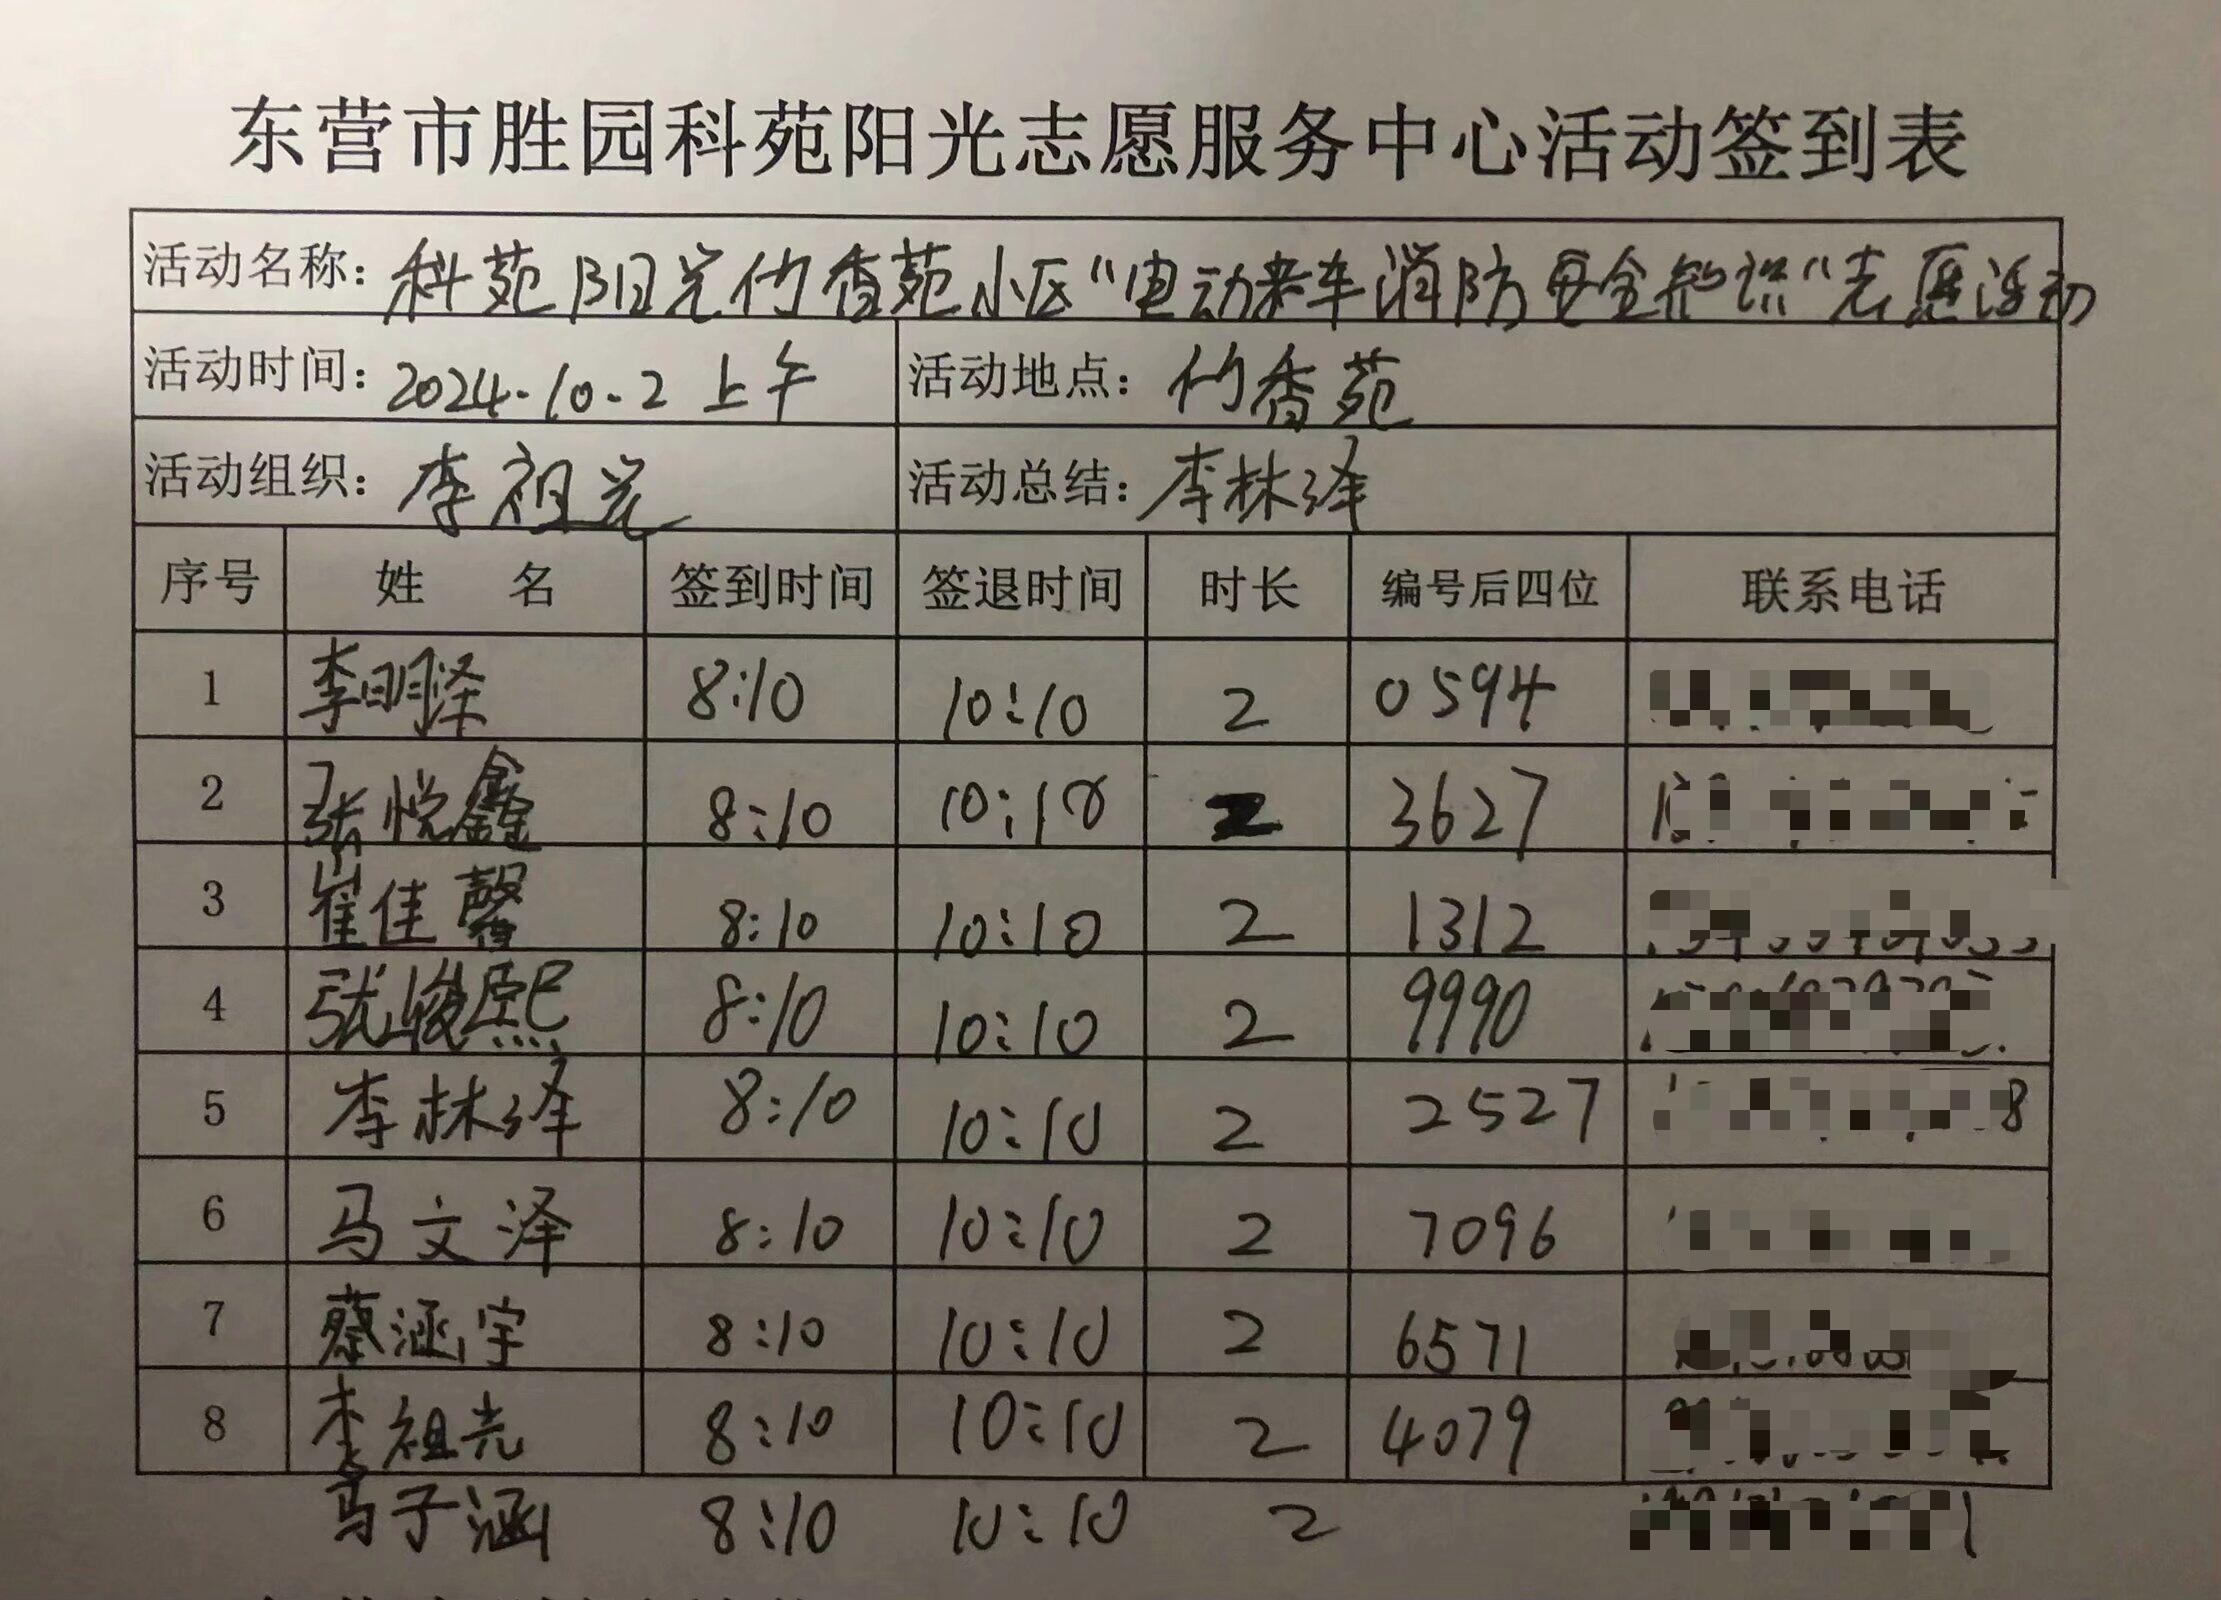 东营市胜园科苑阳光志愿服务中心活动签到表
活动名称：科苑阳光竹香苑小区“电动车消防安全知识”志愿活动
活动时间：2024.10.2 上午 活动地点：竹香苑
活动组织：李祖光 活动总结：李林泽
序号 姓 名 签到时间 签退时间 时长 编号后四位 联系电话
1 李明泽 8:10 10:10 2 0594
2 张悦鑫 8:10 10:10 2 3627
3 崔佳馨 8:10 10:10 2 1312
4 张峻熙 8:10 10:10 2 9990
5 李林泽 8:10 10:10 2 2527
6 马文泽 8:10 10:10 2 7096
7 蔡涵宇 8:10 10:10 2 6571
8 李祖光 8:10 10:10 2 4079
马子涵 8:10 10:10 2